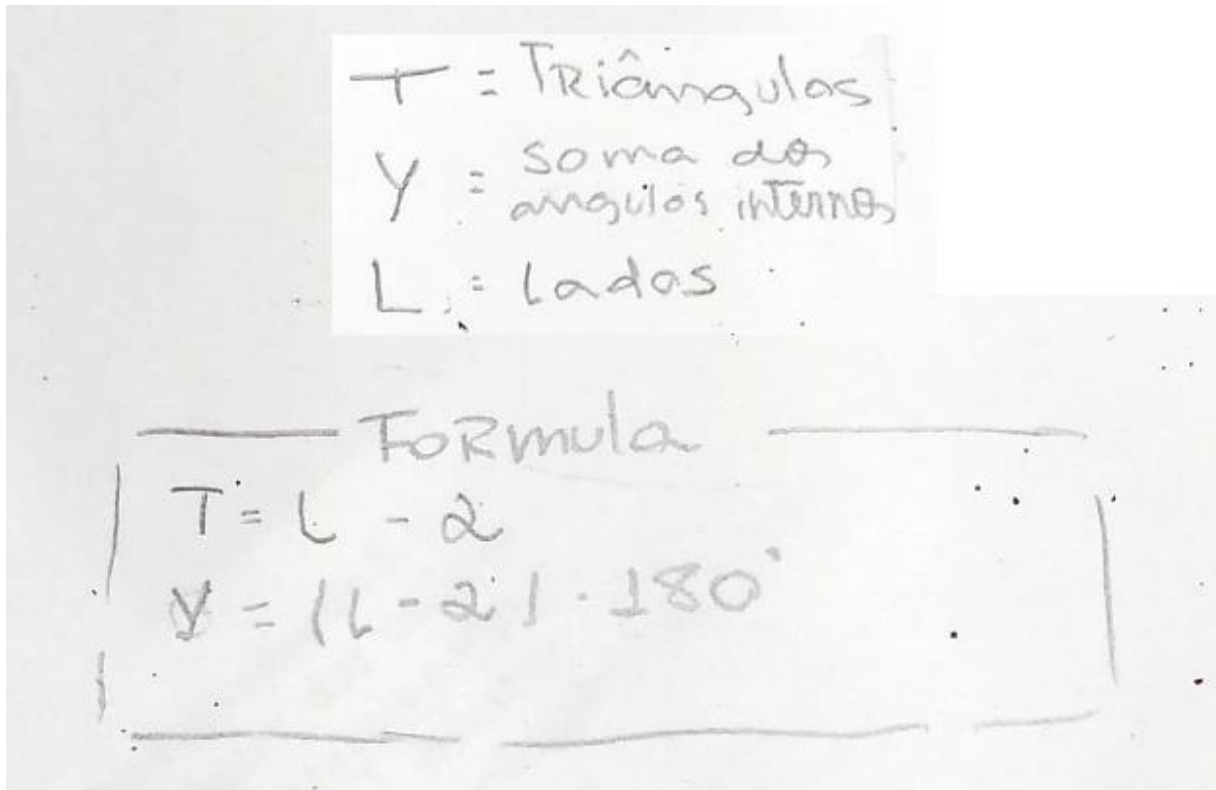 T = TRiângulos
Y = soma dos
angulos internos
L = lados
FORmula
T = L - 2
Y = (L - 2) · 180°